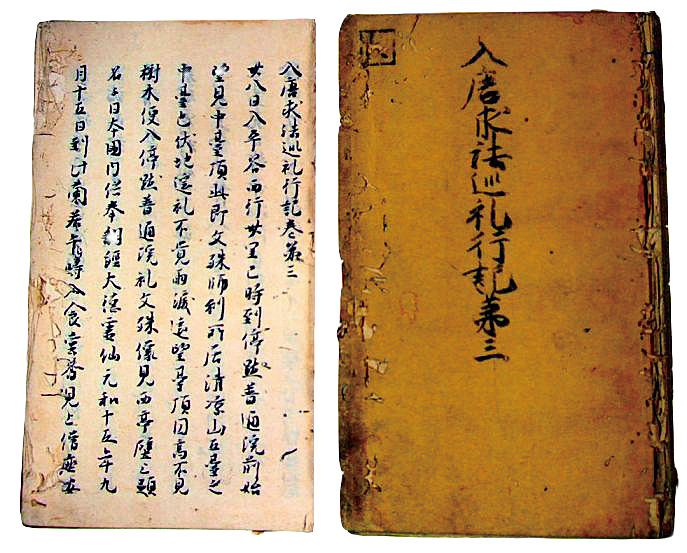 入唐求法巡礼行記第三
入唐求法巡礼行記巻第三
廿八日入平谷西行卅里巳時到停點普通院前始
望見中臺頂此即文殊師利所居清凉山五臺之
中臺也伏地遙礼不覺雨淚遙望臺頂圓高不見
樹木便入停點普通院礼文殊像見西亭壁上題
名云日本國内供奉翻經大德靈仙元和十五年九
月十五日到此蘭若午時入食堂齋見上僧座安